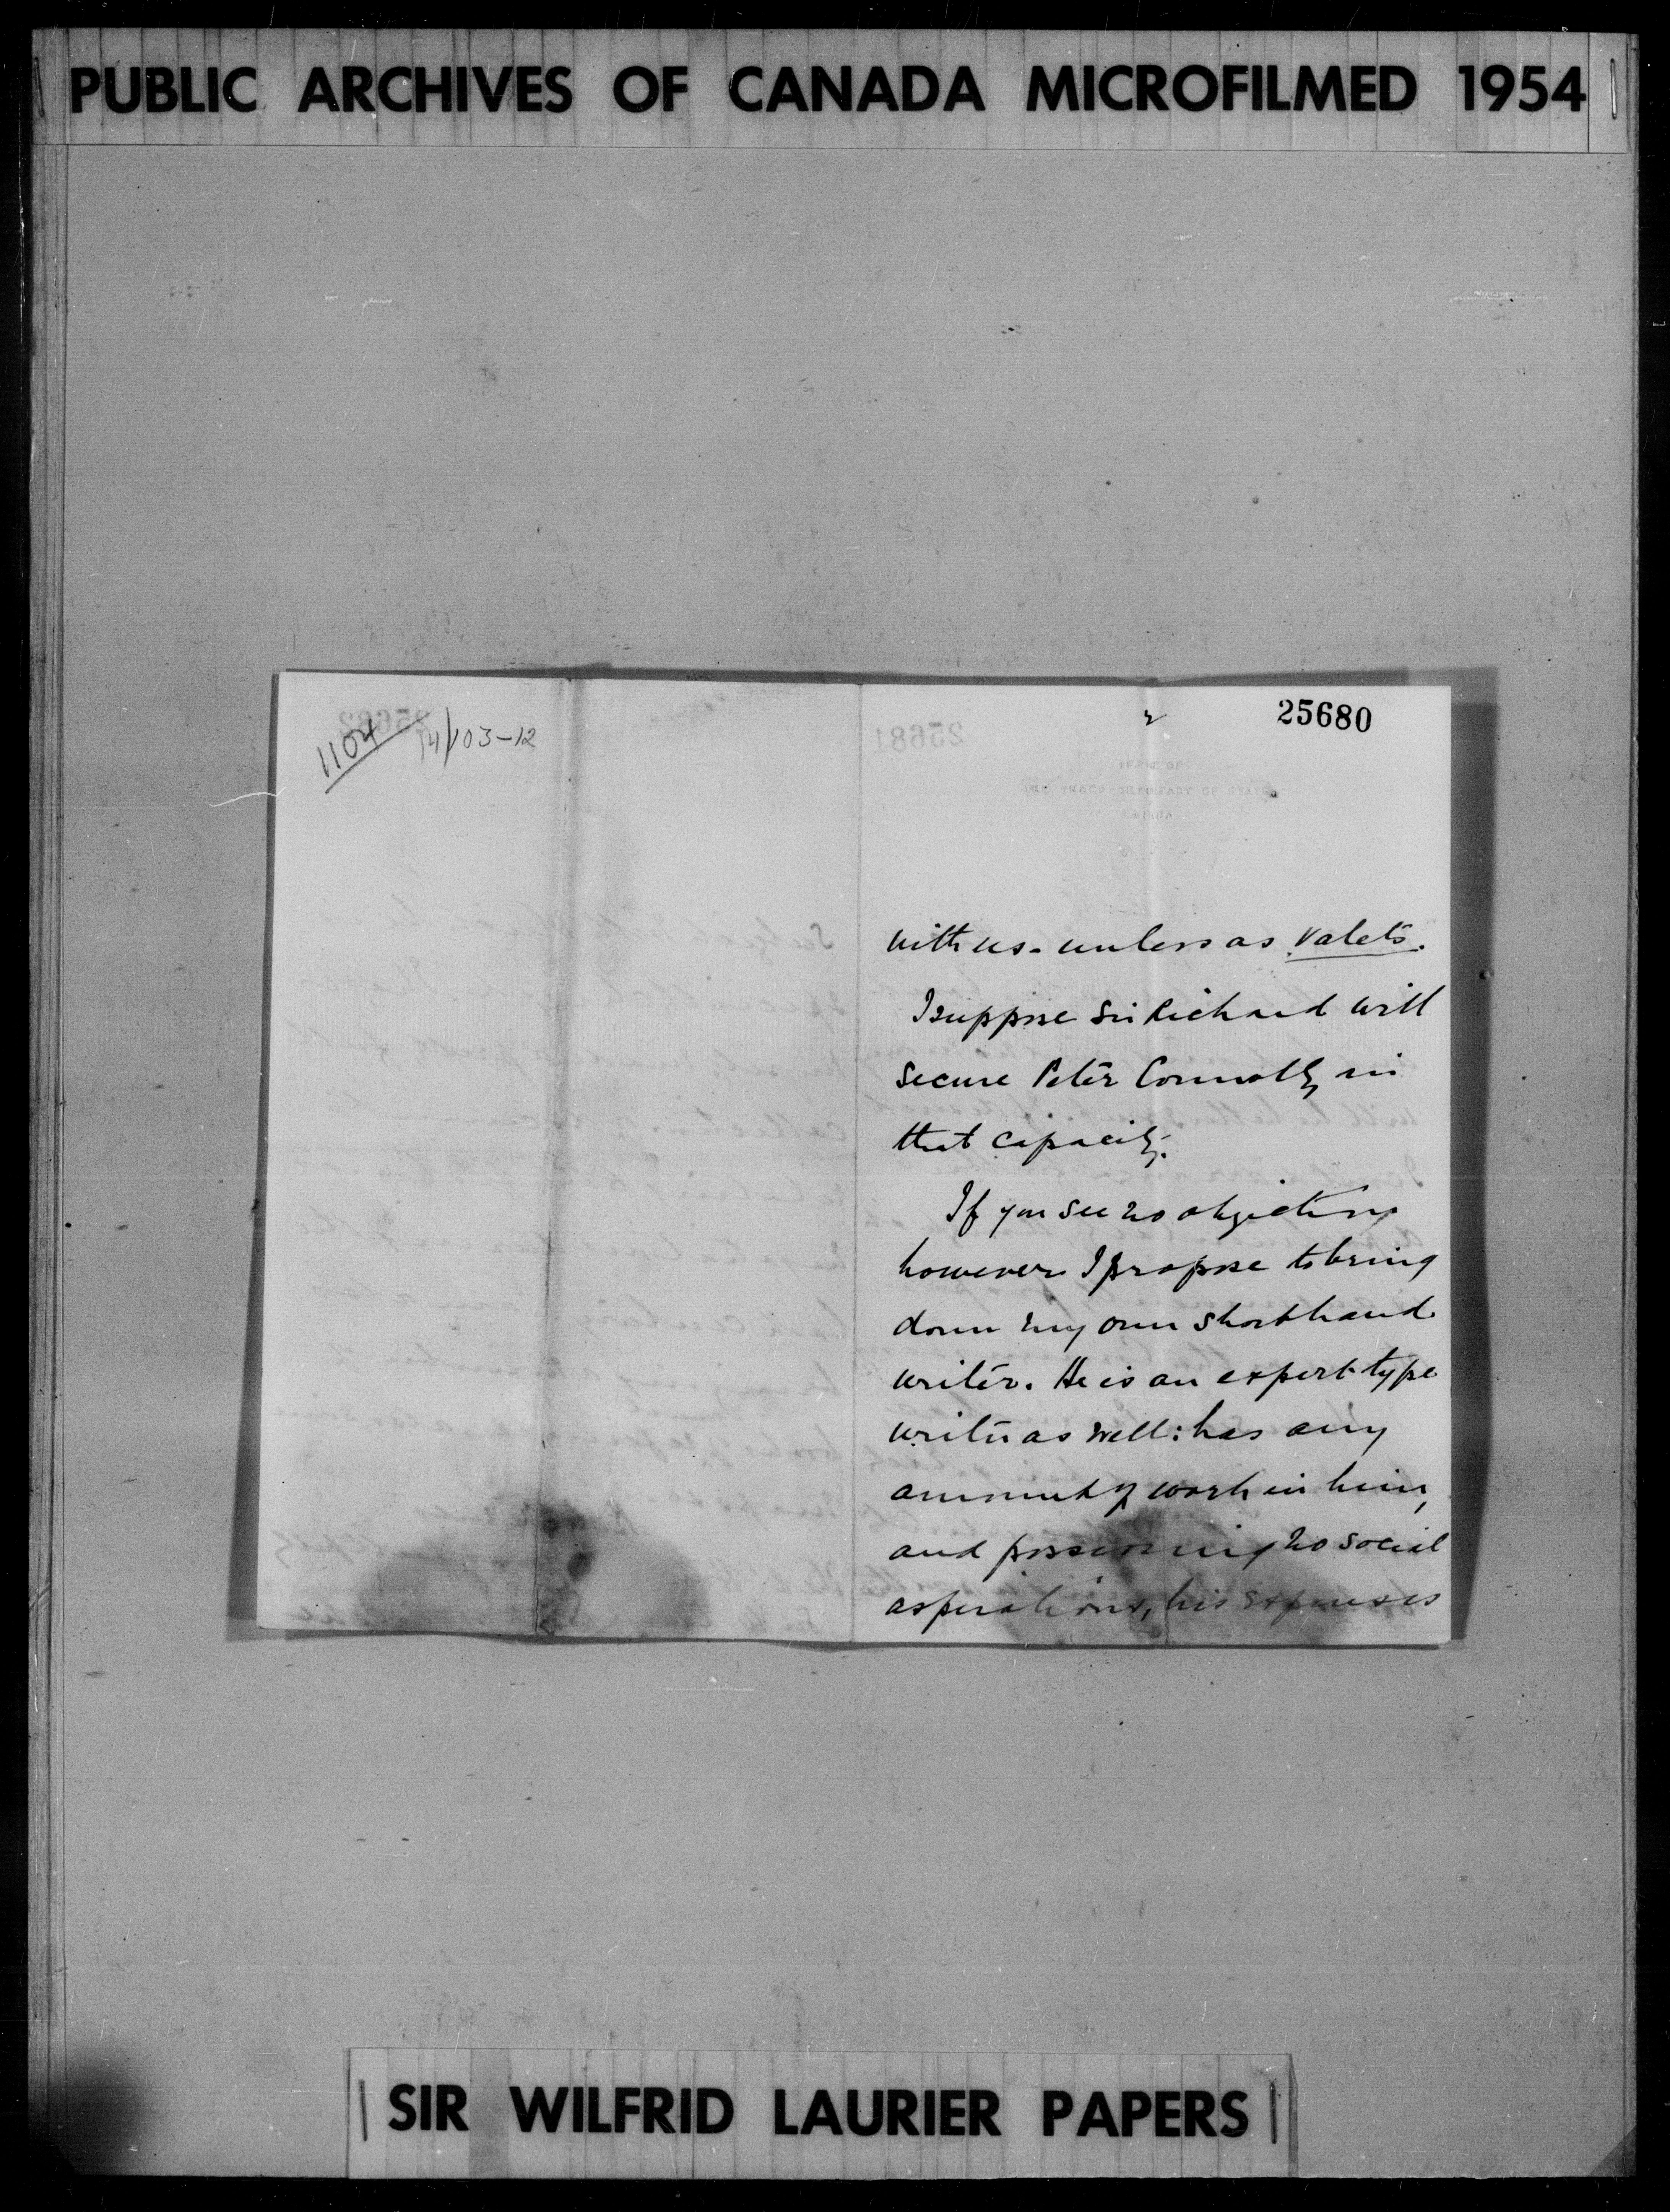 PUBLIC ARCHIVES OF CANADA MICROFILMED 1954
1104
14/103-12
2
25680
with us - unless as valets.
I suppose Sir Richard will
secure Peter Connolly in
that capacity.
If you see no objection
however I propose to bring
down my own shorthand
writer. He is an expert type
writer as well: has any
amount of work in him,
and possessing no social
aspirations, his expenses
SIR WILFRID LAURIER PAPERS